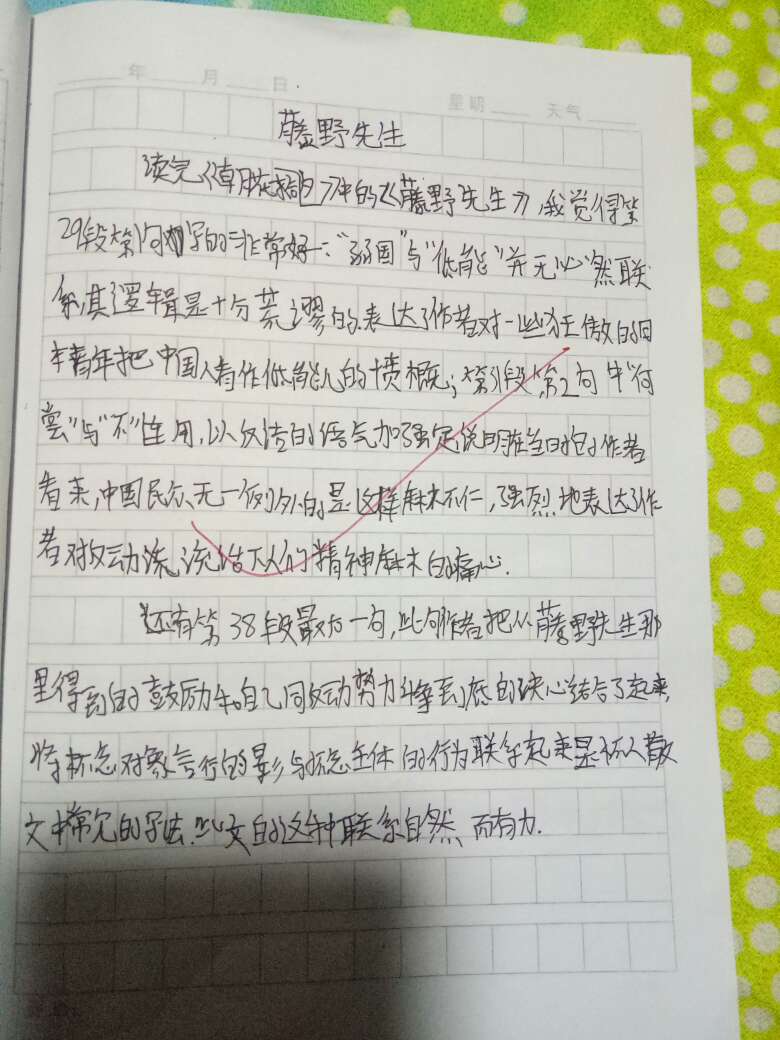 年 月 日
星期 天气
藤野先生
读完《朝花夕拾》中的《藤野先生》,我觉得第
29段第1句写的非常好:“弱国”与“低能”并无必然联
系,其逻辑是十分荒谬的.表达了作者对一些狂傲的日
本青年把中国人看作低能儿的愤慨;第31段第2句中“何
尝”与“不”连用,以反诘的语气加强定说明在当时的作者
看来,中国民众无一例外的是这样麻木不仁,强烈地表达了作
者对反动流统治下人们精神麻木的痛心.
还有第38段最后一句,此句作者把从藤野先生那
里得到的鼓励与自己同反动势力斗争到底的决心结合了起来,
将怀念对象言行的影与怀念主体的行为联系起来是怀人散
文中常见的写法.此文的这种联系自然而有力.